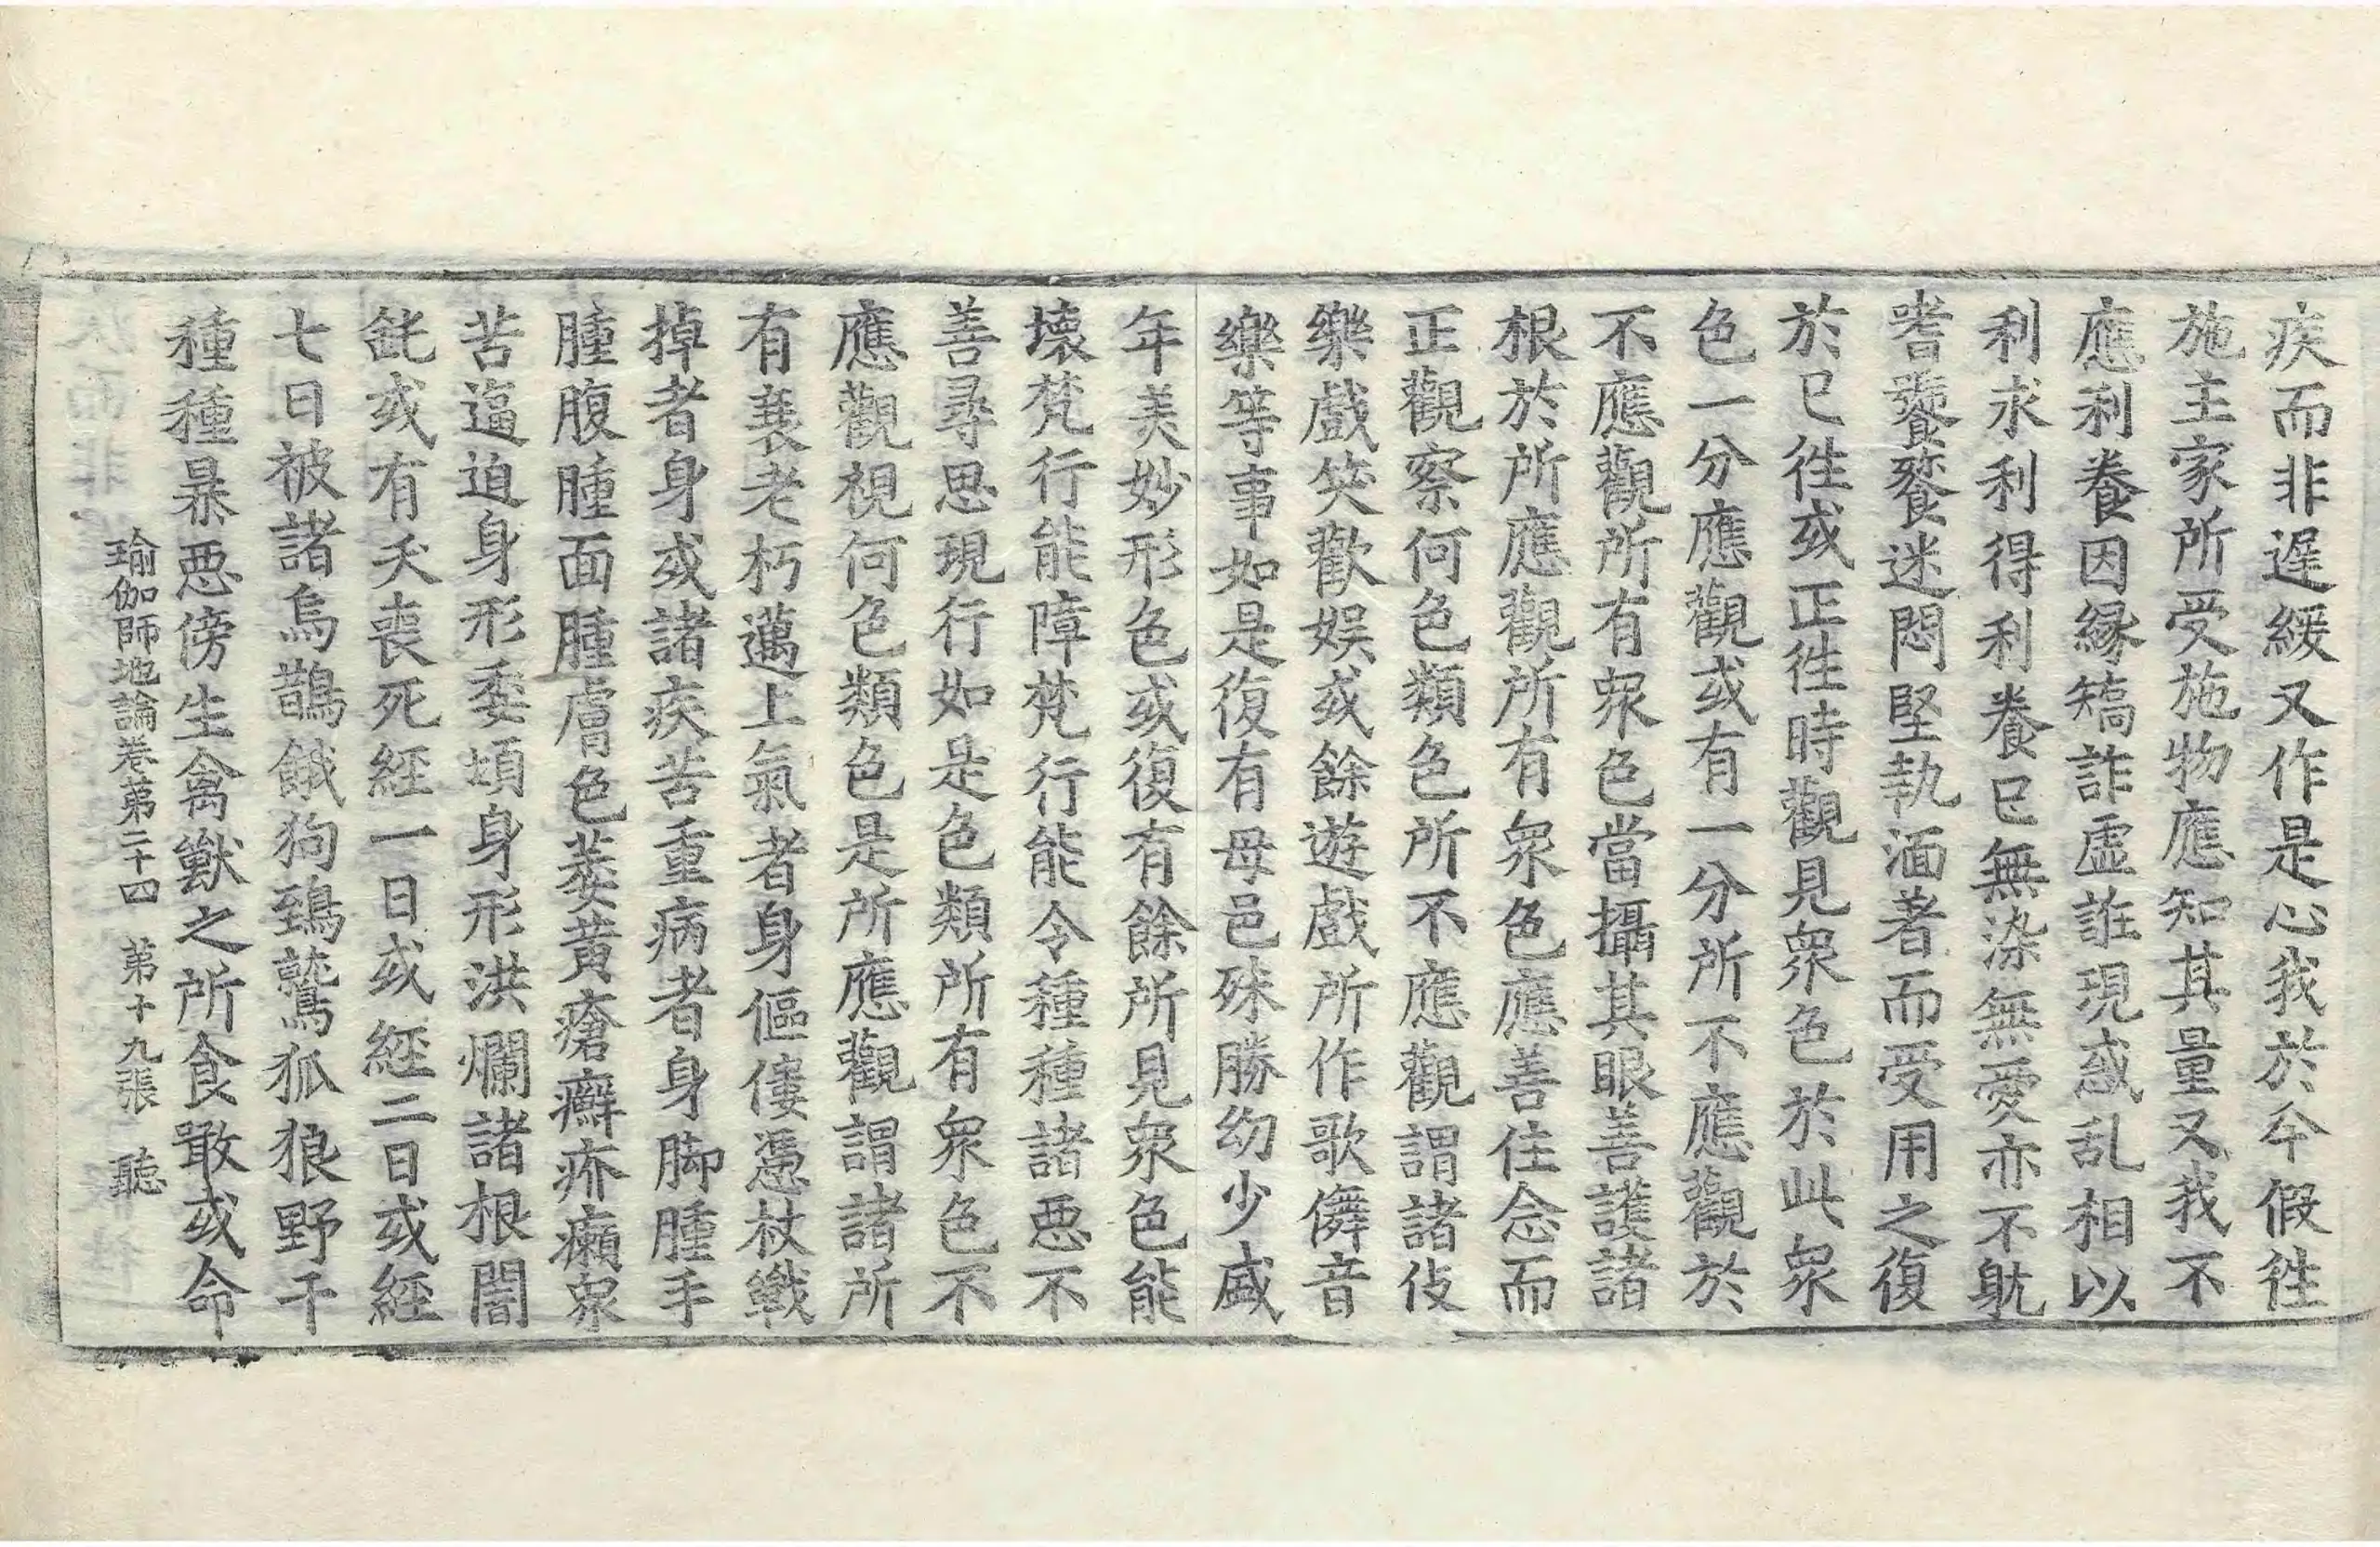 疾而非遅緩又作是心我於今假徃
施主家所受施物應知其量又我不
應利養因縁矯詐虛誑現惑乱相以
利求利得利養已無染無愛亦不躭
嗜饕餮迷悶堅執湎著而受用之復
於已徃或正徃時觀見衆色於此衆
色一分應觀或有一分所不應觀於
不應觀所有衆色當攝其眼善護諸
根於所應觀所有衆色應善住念而
正觀察何色類色所不應觀謂諸伎
樂戲笑歡娛或餘遊戲所作歌儛音
樂等事如是復有母邑殊勝幼少盛
年美妙形色或復有餘所見衆色能
壞梵行能障梵行能令種種諸惡不
善尋思現行如是色類所有衆色不
應觀視何色類色是所應觀謂諸所
有衰老朽邁上氣者身傴僂憑杖戰
掉者身或諸疾苦重病者身脚腫手
腫腹腫面腫膚色萎黃瘡癬疥癩衆
苦逼迫身形委頓身形洪爛諸根闇
鈍或有夭喪死經一日或經二日或經
七日被諸烏鵲餓狗鵄鷲狐狼野干
種種暴惡傍生禽獸之所食噉或命
瑜伽師地論卷第二十四　第十九張　聽